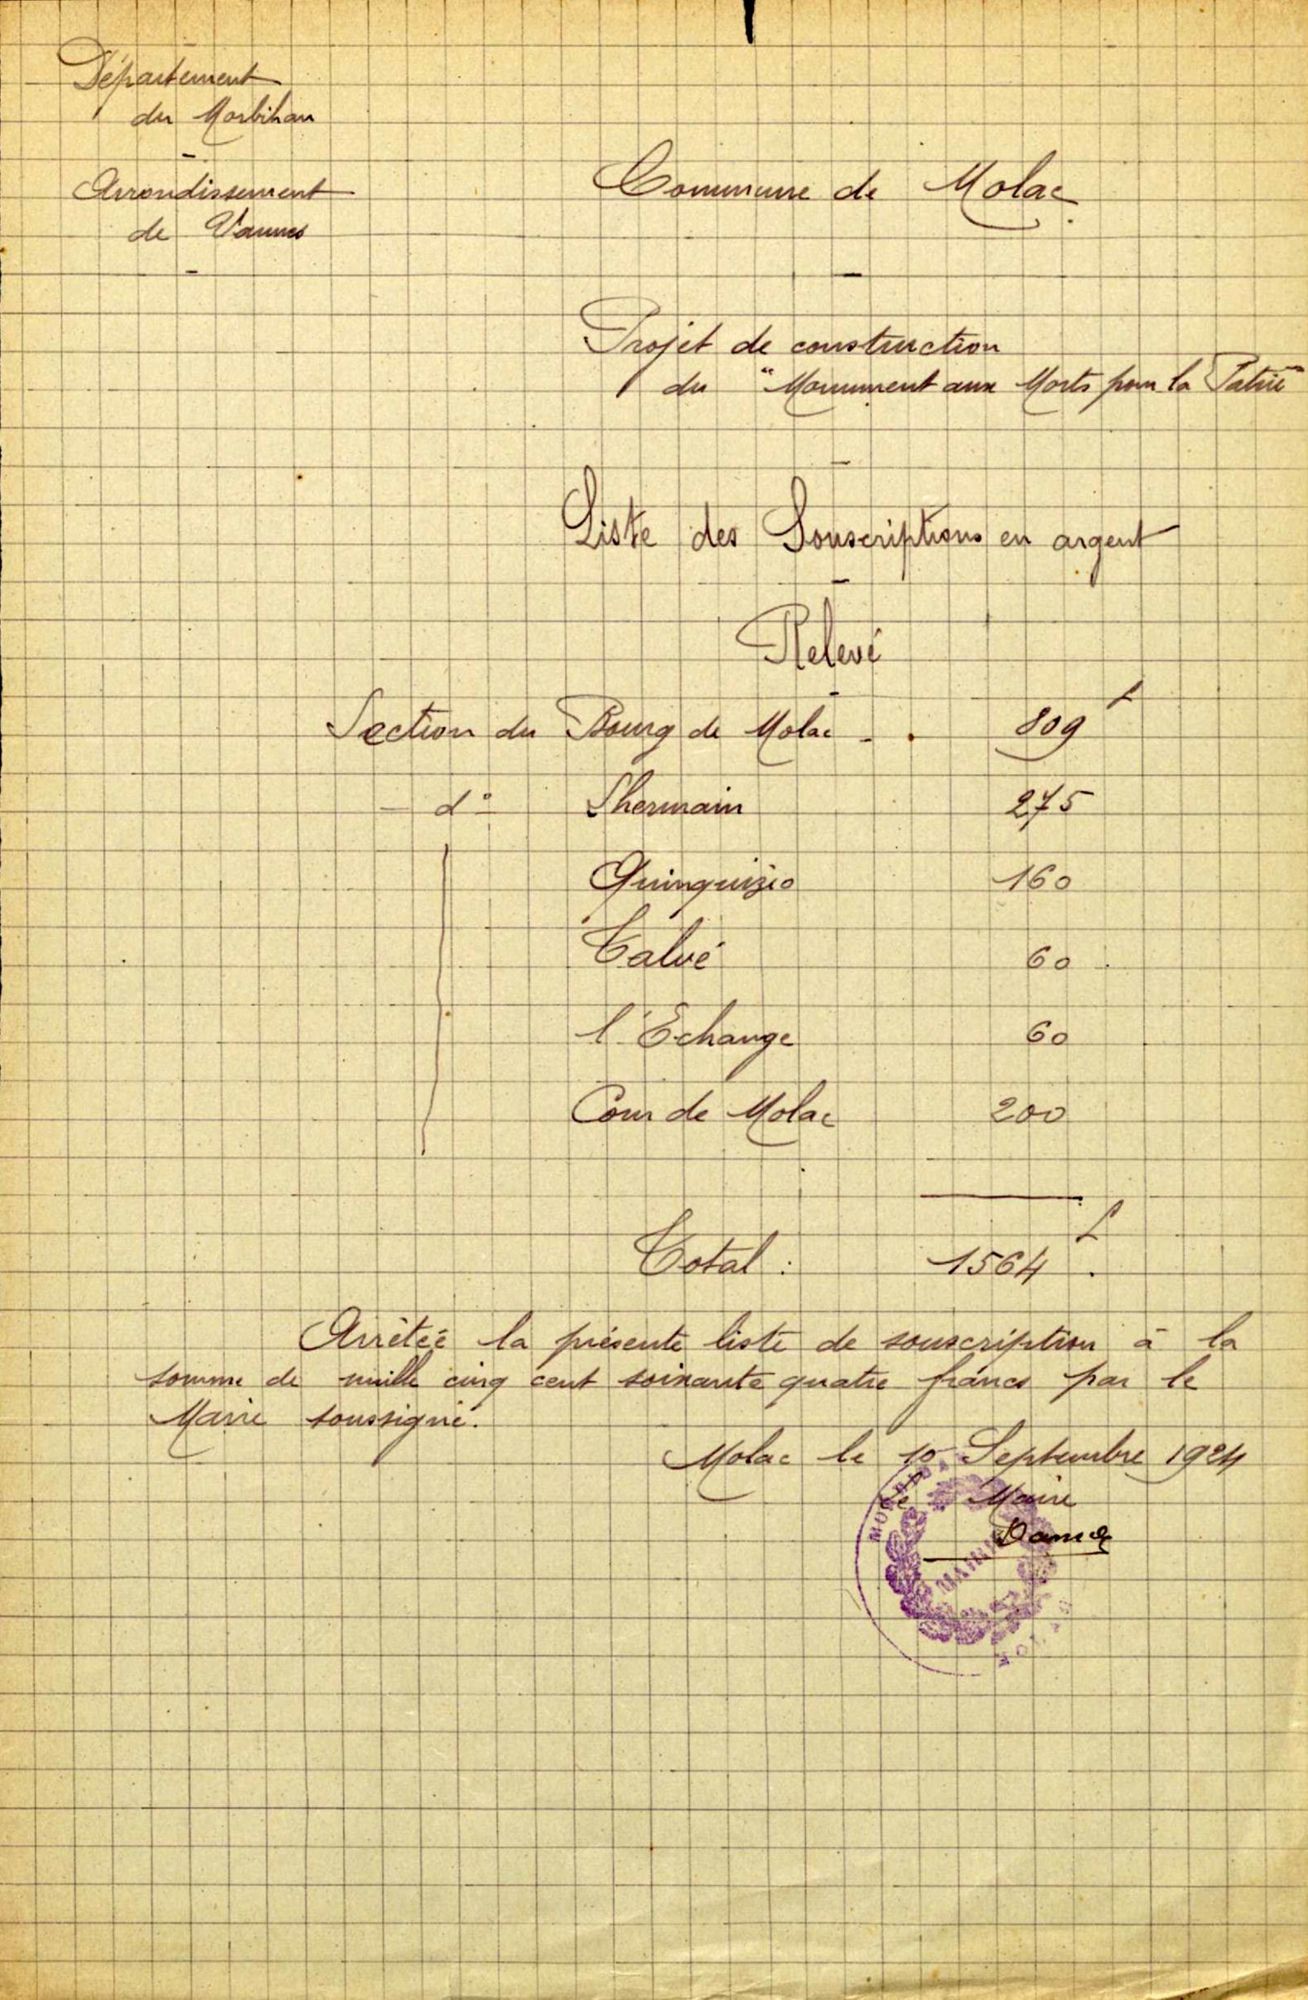 Département
du Morbihan
Arrondissement
de Vannes
Commune de Molac
Projet de construction
du "Monument aux Morts pour la Patrie"
Liste des Souscriptions en argent
Relevé
Section du Bourg de Molac - . 809 f
- d° - Lhermain 275
Quinquizio 160
Talvé 60
l'Echange 60
Cour de Molac 200
Total : 1564 f.
Arrêtée la présente liste de souscription à la
somme de mille cinq cent soixante quatre francs par le
Maire soussigné.
Molac le 10 Septembre 1924
Le Maire
MORBIHAN
MAIRIE
MOLAC